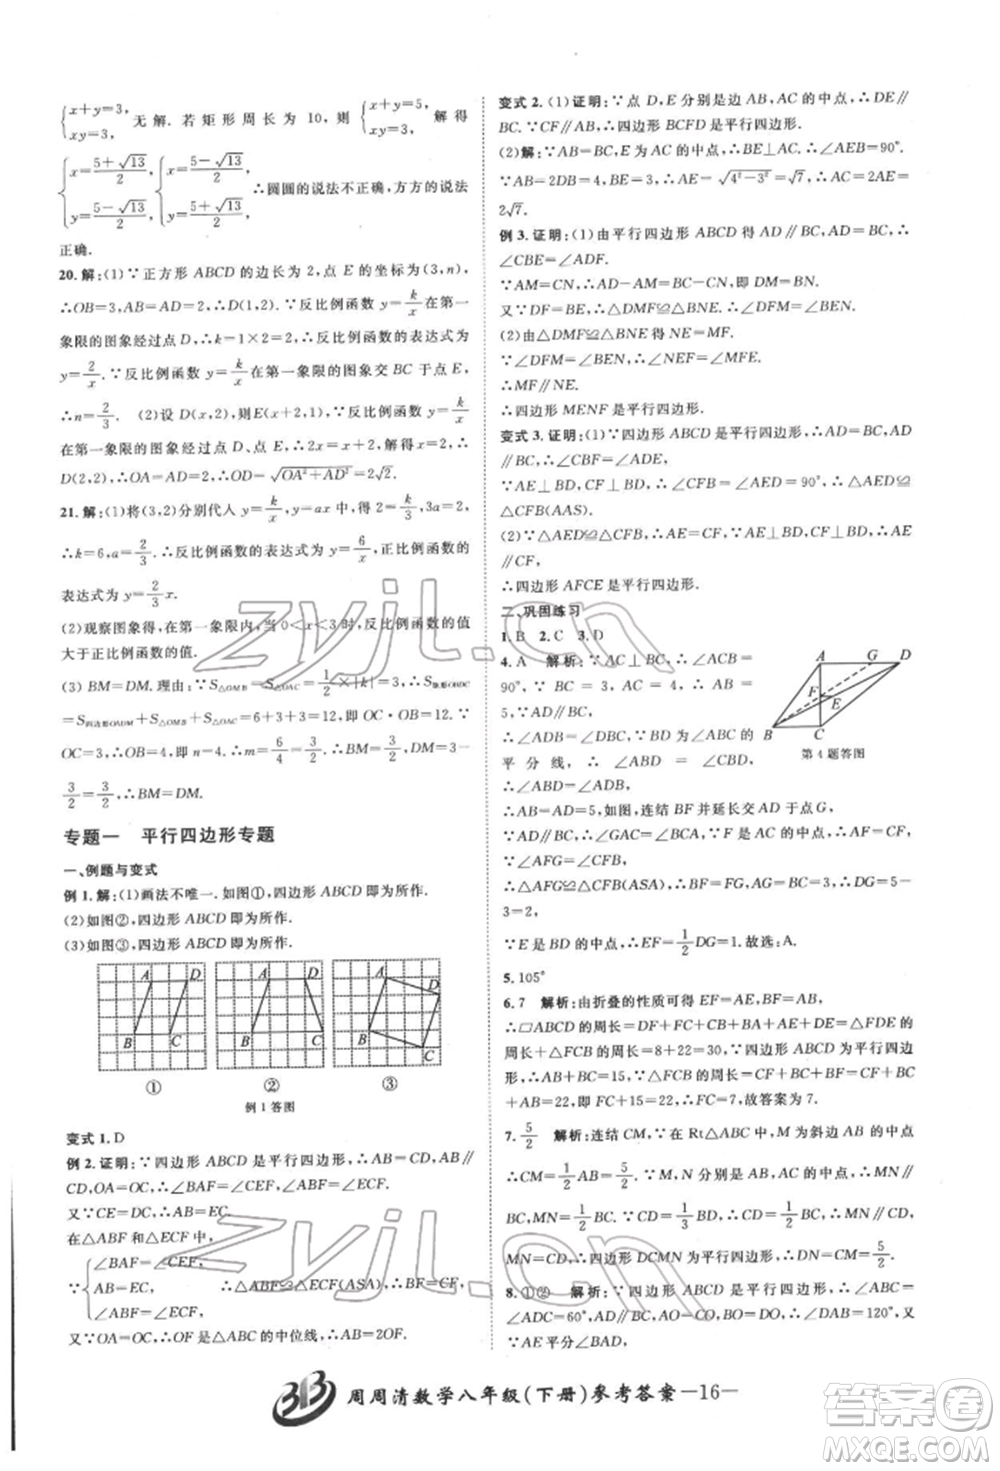 {x+y=3, xy=3, 无解. 若矩形周长为 10, 则 {x+y=5, xy=3, 解得
{x=(5+√13)/2, y=(5-√13)/2, {x=(5-√13)/2, y=(5+√13)/2, ∴圆圆的说法不正确,方方的说法
正确.
20. 解:(1)∵正方形 ABCD 的边长为 2,点 E 的坐标为(3,n),
∴OB=3,AB=AD=2,∴D(1,2).∵反比例函数 y=k/x 在第一
象限的图象经过点 D,∴k=1×2=2,∴反比例函数的表达式为
y=2/x.∵反比例函数在第一象限的图象交 BC 于点 E,
∴n=2/3. (2)设 D(x,2),则E(x+2,1),∵反比例函数 y=k/x
在第一象限的图象经过点 D、点 E,∴2x=x+2,解得 x=2,
D(2,2),∴OA=AD=2,∴OD=√OA²+AD²=2√2.
21. 解:(1)将(3,2)分别代人 y=k/x,y=ax 中,得 2=k/3,3a=2,
∴k=6,a=2/3,∴反比例函数的表达式为 y=6/x,正比例函数的
表达式为 y=2/3x.
(2)观察图象得,在第一象限内,当 0<x<3时,反比例函数的值
大于正比例函数的值.
(3) BM=DM. 理由:∵S△OMB=S△OAC=1/2×|k|=3,∴S矩形OBDC
=S四边形OADM+S△OMB+S△OAC=6+3+3=12,即 OC·OB=12.∵
OC=3,∴OB=4,即 n=4.∴m=6/4=3/2,∴MB=3/2,DM=3-
3/2=3/2,∴BM=DM.
专题一 平行四边形专题
一、例题与变式
例 1. 解:(1)画法不唯一.如图①,四边形 ABCD 即为所作.
(2)如图②,四边形 ABCD 即为所作.
(3)如图③,四边形 ABCD 即为所作.
A D A D A D
B C B C B C
① ② ③
例 1 答图
变式 1. D
例 2. 证明:∵四边形 ABCD 是平行四边形,∴AB∥
CD,OA=OC,∴∠BAF=∠ECF,∠ABF=∠CEF.
又∵CE=DC,∴AB=EC.
在△ABF 和△ECF 中,
∵{∠BAF=∠ECF, AB=EC, ∠ABF=∠ECF, ∴△ABF≌△ECF(ASA),∴BF=CF.
又∵OA=OC,∴OF 是△ABC 的中位线,∴AB=2OF.
变式 2. (1)证明:∵点 D,E 分别是边 AB,AC 的中点,∴DE∥
BC.∵CF∥AB,∴四边形 BCFD 是平行四边形.
(2)解:∵AB=BC,E 为 AC 的中点,∴BE⊥AC.∴∠AEB=90°.
∵AB=2DB=4,BE=3,∴AE=√4²-3²=√7,∴AC=2AE=
2√7.
例 3. 证明:(1)由平行四边形 ABCD 得 AD∥BC,AD=BC,∴
∠CBE=∠ADF.
∵AM=CN,∴AD-AM=BC-CN,即 DM=BN.
又∵DF=BE,∴△DMF≌△BNE.
(2)由△DMF≌△BNE 得 NE=MF.
∵∠DFM=∠BEN 得∠FEN=∠MFE.
∴MF∥NE.
∴四边形 MENF 是平行四边形.
变式 3. 证明:(1)∵四边形 ABCD 是平行四边形,∴AD=BC,AD
∥BC,∴∠ADE=∠CBF.
∵AE⊥BD,CF⊥BD,∴∠AED=∠CFB=90°.∴△AED≌
△CFB(AAS).
(2)∵△AED≌△CFB,∴AE=CF.∵AE⊥BD,CF⊥BD,∴AE
∥CF,
∴四边形 AFCE 是平行四边形.
二、巩固练习
1. B 2. C 3. D
4. A 解析:∵AC⊥BC,∴∠ACB=
90°,∴AC=√AB²-BC²=4.∵AB=
5,∵AD∥BC,∴∠ADB=∠DBC.
∵BD 为∠ABC 的
平分线,∴∠ABD=∠CBD,∴
∠ABD=∠ADB,
∴AB=AD=5,如图,连结 BF 并延长交 AD 于点 G,
∵AD∥BC,∴∠GAC=∠BCA,∵F 是 AC 的中点,∴AF=CF,
∵∠AFG=∠CFB,
∴△AFG≌△CFB(ASA),∴BF=FG,AG=BC=3,∴DG=5-
3=2,
∵E 是 BD 的中点,∴EF=1/2DG=1. 故选:A.
A G D
F E
B C
第 4 题答图
5. 105°
6. 7 解析:由折叠的性质可得 EF=AE、BF=AB,
∴▱ABCD 的周长=DF+FC+CB+BA+AE+DE,△FDE 的
周长=DF+FE+DE=8+22=30,∵四边形 ABCD 为平行四边
形,∴AB+BC=BF+BC=15,∵△FCB 的周长=FC+CB+BF
=22,即 FC+15=22,∴FC=7,故答案为 7.
7. 5/2 解析:连结 CM,∵Rt△ABC 中,M 为斜边 AB 的中点,
∴CM=1/2AB=5/2.∵M,N 分别是 AB,AC 的中点,∴MN∥
BC,MN=1/2BC,∵CD=1/2BC,∴MN=CD,又
MN∥BC,∴四边形 DCMN 为平行四边形,∴DN=CM=5/2.
8. ①② 解析:∵四边形 ABCD 是平行四边形,∴∠ABC=
∠ADC=60°,OA=OC,BO=DO,∴∠BAD=120°,
又∵AE平分∠BAD,
zyjl.cn
zyjl.cn
周周清数学八年级(下册)参考答案-16-
答案圈
MXQE.COM